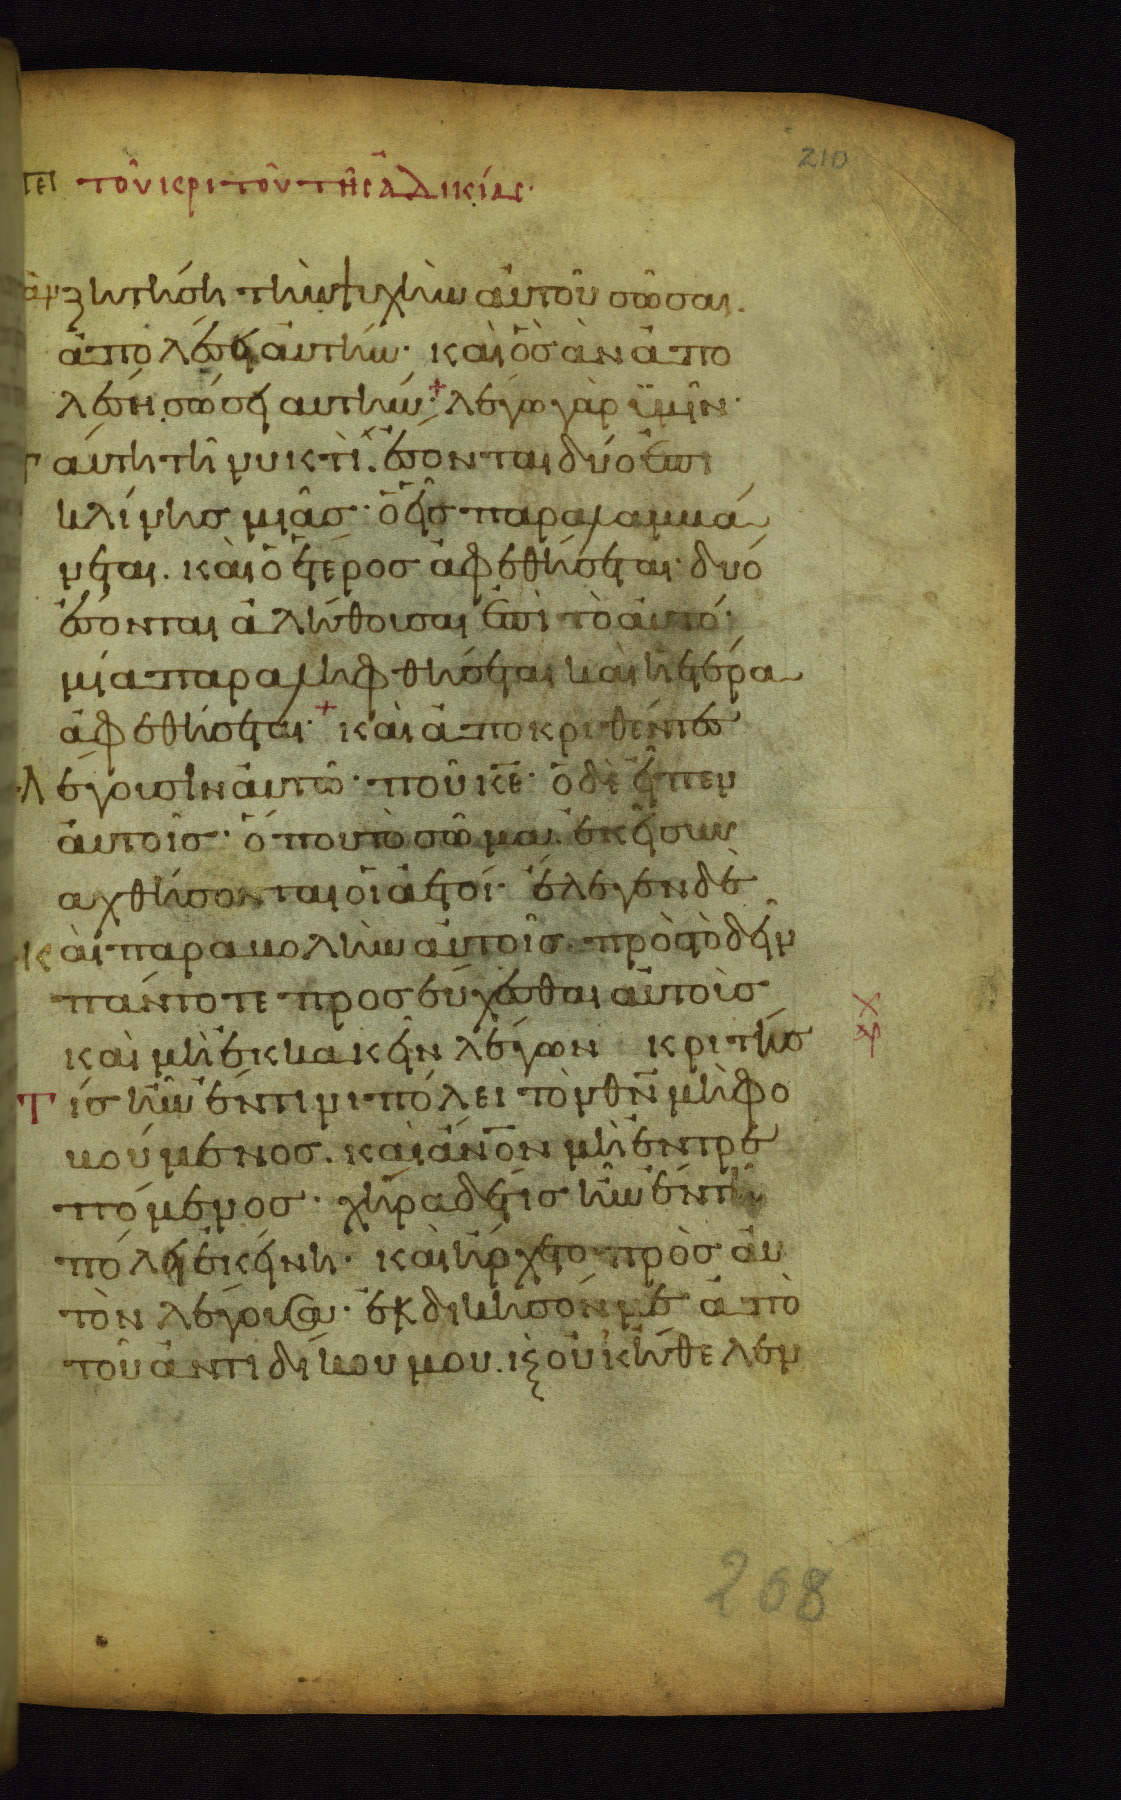 210
τει τοῦ κριτοῦ τῆς ἀδικίας·
ἂν ζητήση τὴν ψυχὴν αὐτοῦ σῶσαι.
ἀπολέσει αὐτήν· καὶ ὃσ ἂν ἀπο
λέση σώσει αυτήν· λέγω γὰρ ϋμῖν·
αύτη τῆ νυκτὶ. ἔσονται δύο ἐπι
κλίνησ μιᾶσ· ὁ εἷσ παραλαμβά
νεται. καὶ ὁ ἕτεροσ ἀφεθήσεται· δυό
ἔσονται ἀλήθουσαι ἐπὶ τὸ αὐτό·
μία παραληφθήσεται καὶ ἡ ετέρα
ἀφεθήσεται· καὶ ἀποκριθέντεσ
λέγουσιν αὐτῶ· ποῦ κε· ὁ δὲ εἶπεν
αὐτοῖσ· ὅπου τὸ σῶμα. ἐκεῖ συν
αχθήσονται οἱ ἀετοί· ἔλεγεν δὲ
καὶ παραβολὴν αὐτοῖσ. πρὸσ τὸ δεῖν
πάντοτε προσεύχεσθαι αὐτοὺσ
καὶ μὴ ἐκκακεῖν λέγων κριτήσ
τίσ ἦν ἔν τινι πόλει τὸν θν μὴ φο
βούμενοσ. καὶ ἀνον μὴ ἐντρε
πόμενοσ· χήρα δε τὶσ ἦν ἐν τῆ
πόλει ἐκείνη· καὶ ἤρχετο πρὸσ αὐ
τὸν λέγουσα· ἐκδικησόν με ἀπὸ
τοῦ ἀντιδίκου μου. κς οὐκ ἤθελεν
268